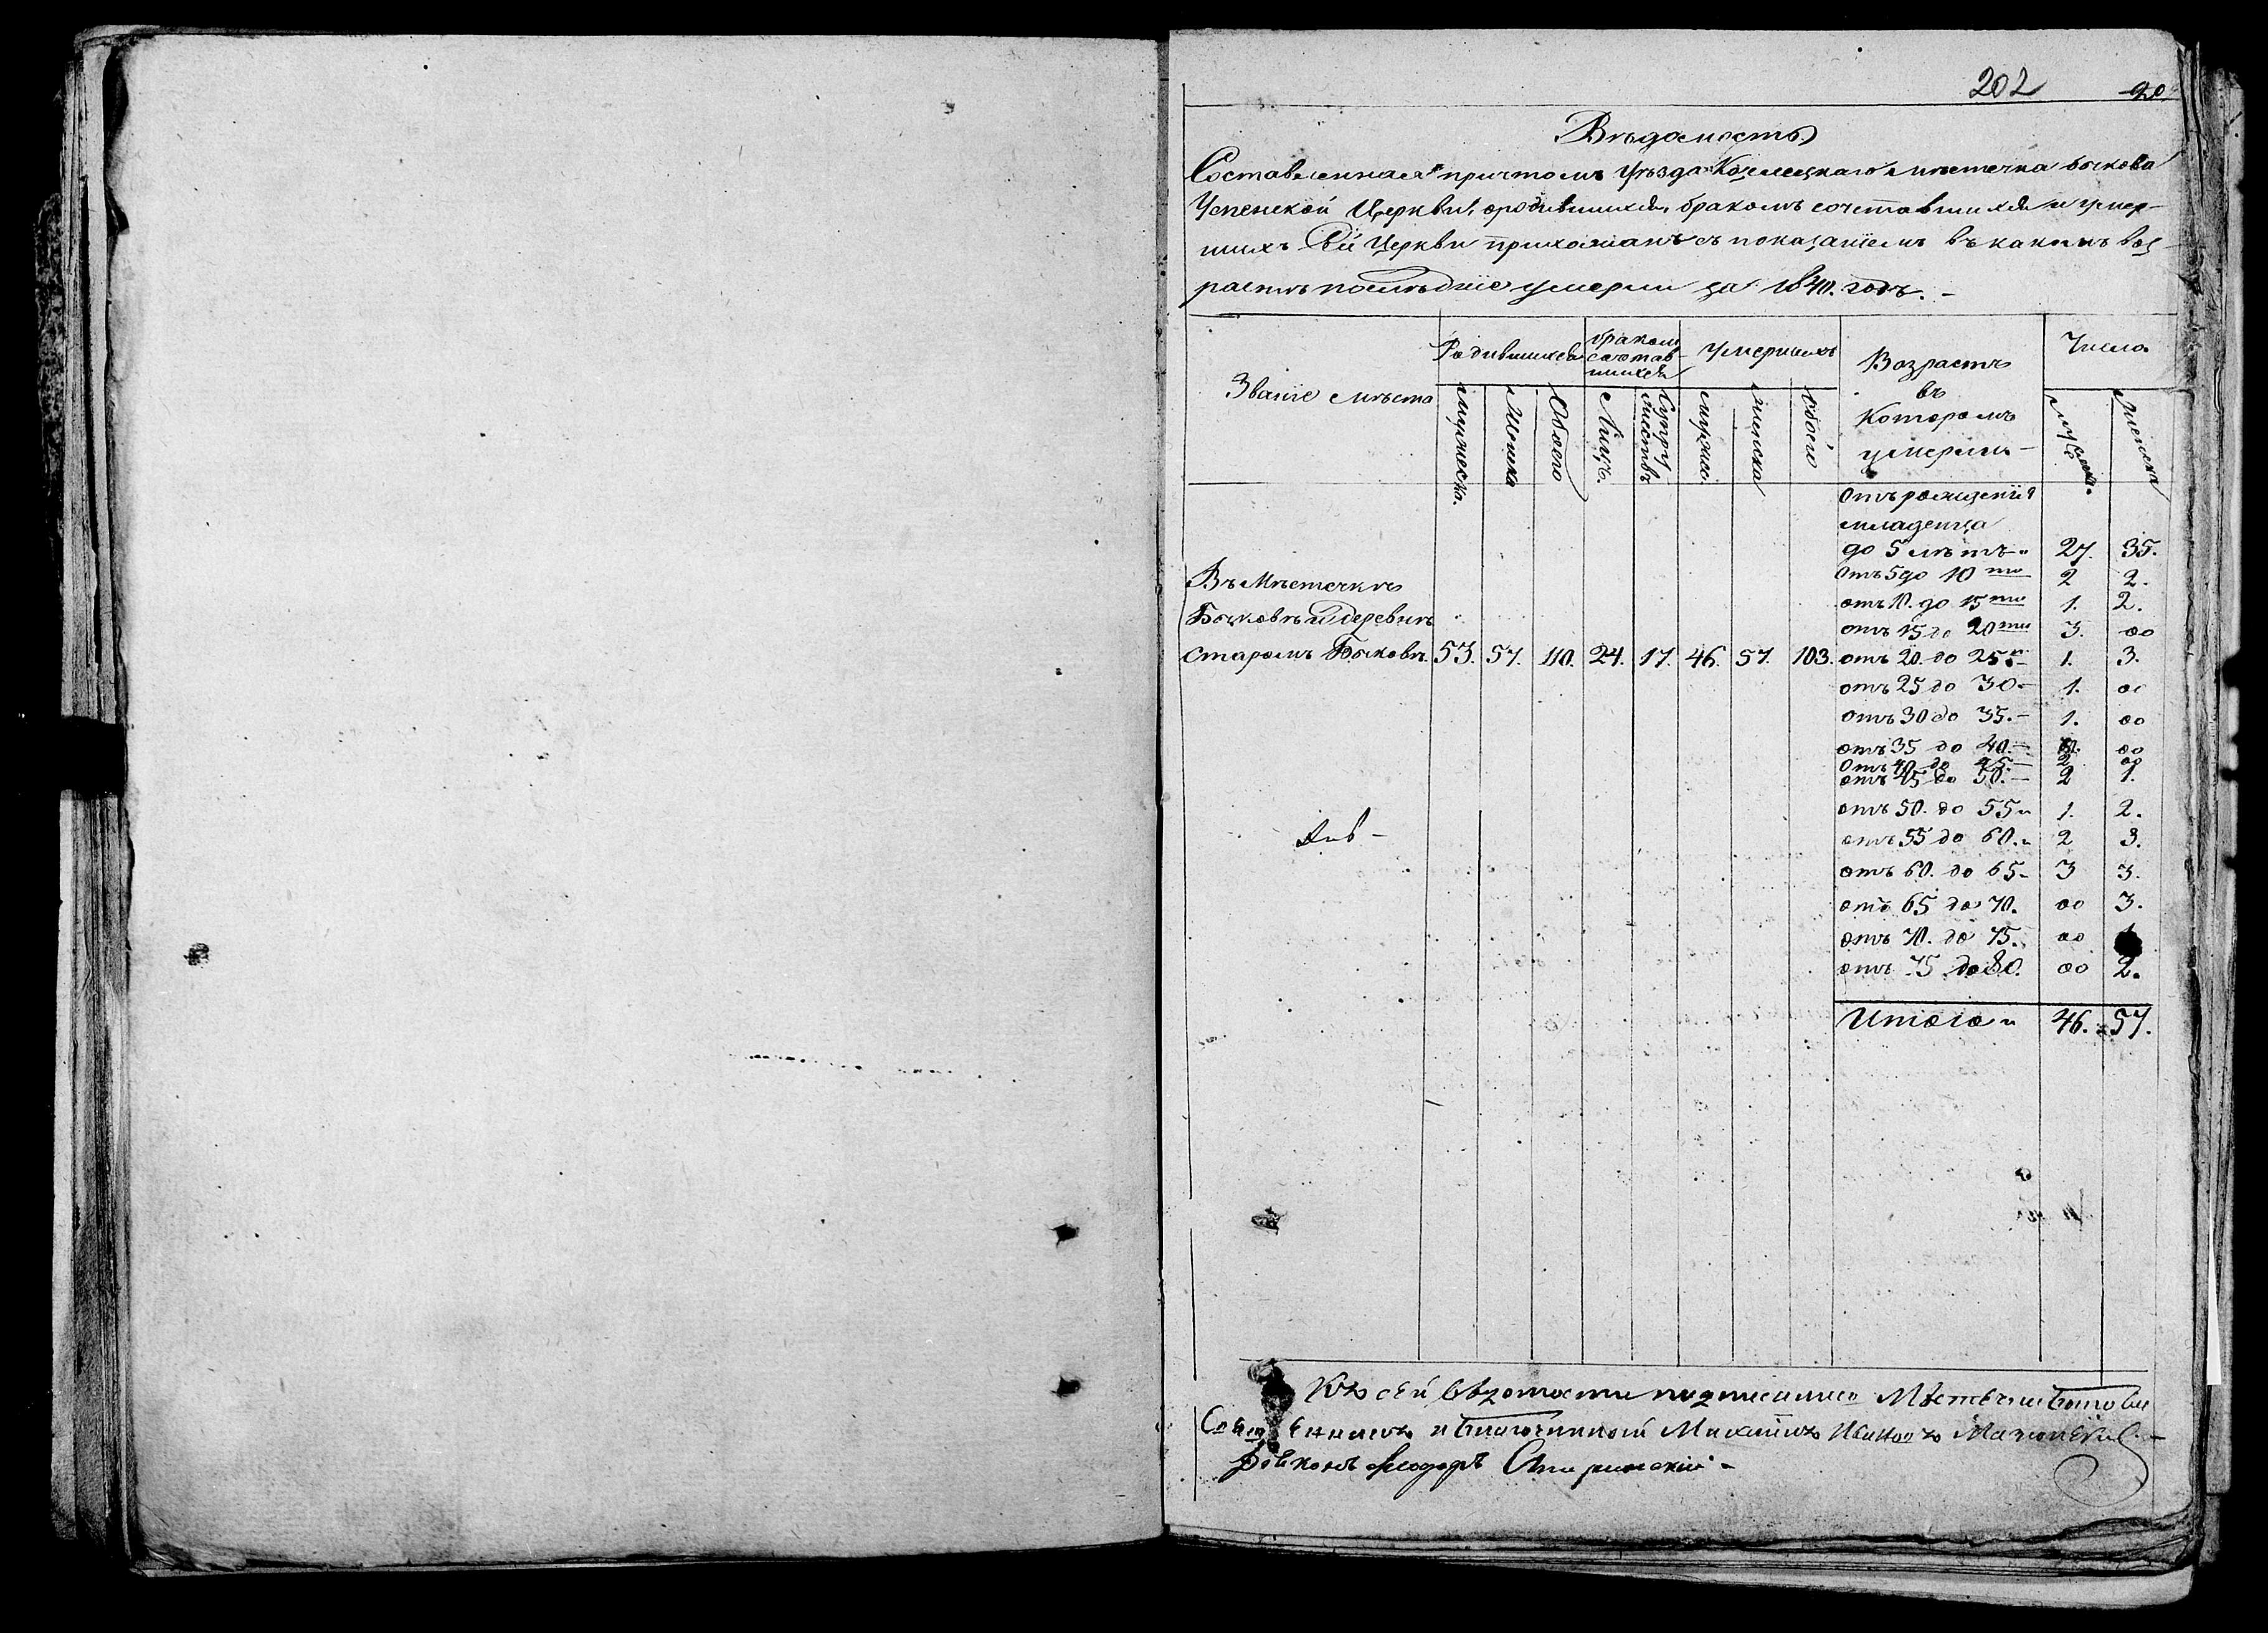 202
Вѣдомость
Составленная причтомъ уѣзда Козелецкаго мѣстечка Боекова
Успенской Церкви, ородившихся, бракомъ сочетавшихся и умер-
шихъ Сей Церкви прихожанъ съ показаніемъ въ какомъ воз-
растѣ послѣдніе умерли за 1840. годъ. -
Званіе мѣста
Родившихся
бракомъ сочетав-шихся
Умершихъ
Возрастъ въ Которомъ умерли -
Число
мужеска.
женска
Обоего
Лицъ.
Супружествъ
мужес.
женска
обоего
мужеск.
женска
Отъ рожденія
младенца
до 5 лѣтъ 27. 35.
Отъ 5 до 10 ти 2 2.
отъ 10. до 15 ти 1. 2.
отъ 15 до 20 ти 3. оо
Въ Мѣстечкѣ
деревнѣ
старомъ 53. 57. 110. 24. 17. 46. 57. 103. отъ 20. до 25 1. 3.
отъ 25 до 30 - 1. оо
отъ 30 до 35. - 1. оо
отъ 35 до 40. - оо
отъ 40 до 45. - 2 оо
отъ 45 до 50. - 2 1.
отъ 50. до 55 1. 2.
отъ 55 до 60. 2 3.
отъ 60. до 65 - 3 3.
отъ 65 до 70. оо 3.
отъ 70. до 75. оо
отъ 75 до 80. оо 2.
Итого 46. 57.
Къ сей подписались
и благочинной Михаилъ Ивановъ
Дьяконъ Феодоръ